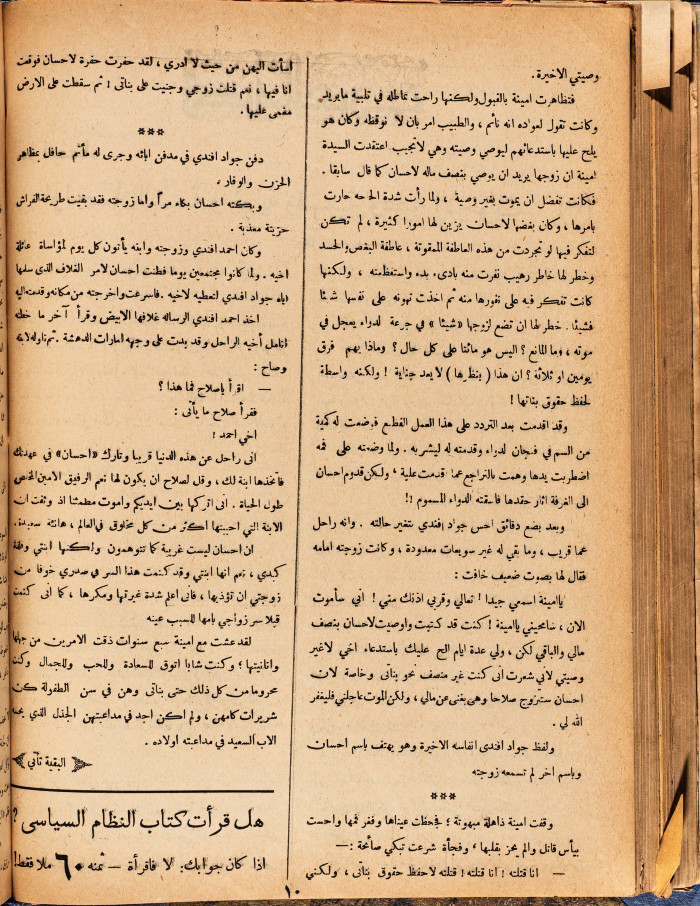 وصيتي الاخيرة.
فتظاهرت امينة بالقبول ولكنها راحت تماطله في تلبية مايريد
وكانت تقول لعواده انه نائم ، والطبيب امر بان لا نوقظه وكان هو
يلح عليها باستدعائهم ليوصي وصيته وهي لاتجيب اعتقدت السيدة
امينة ان زوجها يريد ان يوصي بنصف ماله لاحسان كما قال سابقا .
فكانت تفضل ان يموت بغير وصية ، ولما رأت شدة الحاحه حارت
بامرها ، وكان بغضها لاحسان يزين لها امورا كثيرة ، لم تكن
لتفكر فيها لو تجردت من هذه العاطفة الممقوتة ، عاطفة البغض والحسد
وخطر لها خاطر رهيب نفرت منه بادىء بدء واستفظعته ، ولكنها
كانت تفكر فيه على نفورها منه ثم اخذت تهونه على نفسها شيئا
فشيئا . خطر لها ان تضع لزوجها «شيئا» في جرعة لدواء يعجل في
موته ، وما المانع ؟ اليس هو مائتا على كل حال ؟ وماذا يهم فرق
يومين او ثلاثة ؟ ان هذا ( بنظرها ) لا يعد جناية ! ولكنه واسطة
لحفظ حقوق بناتها !
وقد اقدمت بعد التردد على هذا العمل الفظيع فوضعت له كمية
من السم في فنجان لدواء وقدمته له ليشربه . ولما وضعته على فمه
اضطربت يدها وهمت بالتراجع عما اقدمت عليه ، ولكن قدوم احسان
الى الغرفة اثار حقدها فاسقته الدواء المسموم !!
وبعد بضع دقائق احس جواد افندي بتغير حالته . وانه راحل
عما قريب ، وما بقي له غير سويعات معدودة ، وكانت زوجته امامه
فقال لها بصوت ضعيف خافت :
ياامينة اسمعي جيدا ! تعالي وقربي اذنك مني ! اني سأموت
الان ، سامحيني ياامينة ! كنت قد كتبت واوصيت لاحسان بنصف
مالي والباقي لكن ، ولي عدة ايام الح عليك باستدعاء اخي لاغير
وصيتي لاني شعرت انى كنت غير منصف نحو بناتى وخاصة لان
احسان ستتزوج صلاحا وهى بغنى عن مالي ، ولكن الموت عاجلني فليغفر
الله لي .
ولفظ جواد افندى انفاسه الاخيرة وهو يهتف باسم احسان
وباسم اخر لم تسمعه زوجته
***
وقفت امينة ذاهلة مبهوتة ؛ فجحظت عيناها وفغر فمها واحست
بيأس قاتل والم يحز بقلبها ، وفجأة شرعت تبكي صائحة :—
— انا قتلته ! انا قتلته ! قتلته لاحفظ حقوق بناتى ، ولكني
اسأت اليهن من حيث لا ادري ، لقد حفرت حفرة لاحسان فوقعت
انا فيها ، نعم قتلت زوجي وجنيت على بناتى ! ثم سقطت على الارض
مغمى عليها .
***
دفن جواد افندي في مدفن ابائه وجرى له مأتم حافل بمظاهر
الحزن والوقار .
وبكته احسان بكاء مراً واما زوجته فقد بقيت طريحة الفراش
حزينة معذبة .
وكان احمد افندي وزوجته وابنه يأتون كل يوم لمؤاساة عائلة
اخيه . ولما كانوا مجتمعين يوما فطنت احسان لامر الغلاف الذى سلمها
اياه جواد افندي لتعطيه لاخيه . فاسرعت واخرجته من مكانه وقدمته اليه
اخذ احمد افندي الرساله غلافها الابيض وقرأ آخر ما خطه
انامل أخيه الراحل وقد بدت على وجهه امارات الدهشة . ثم ناوله لابنه
وصاح :
— اقرأ ياصلاح فما هذا ؟
فقرأ صلاح ما يأتى :
اخي احمد !
انى راحل عن هذه الدنيا قريبا وتارك «احسان» في عهدتك
فاتخذها ابنة لك ، وقل لصلاح ان يكون لها نعم الرفيق الأمين المخلص
طول الحياة . انى اتركها بين ايديكم واموت مطمئنا اذ وثقت ان
الابنة التي احببتها اكثر من كل مخلوق في العالم ، هانئة سعيدة .
ان احسان ليست غريبة كما تتوهمون ولكنها ابنتي وفلذة
كبدي ، نعم انها ابنتي وقد كتمت هذا السر في صدري خوفا من
زوجتي ان تؤذيها ، فأنى اعلم شدة غيرتها ومكرها ، كما أنى كتمت
قبلا سر زواجي بامها للسبب عينه
لقد عشت مع امينة سبع سنوات ذقت الامرين من جهلها
وانانيتها ؛ وكنت شابا اتوق للسعادة وللحب وللجمال وكنت
محروما من كل ذلك حتى بناتى وهن في سن الطفولة كن
شريرات كامهن ، ولم اكن اجد في مداعبتهن الجذل الذي يجده
الاب السعيد في مداعبته اولاده .
البقية تأتي
هل قرأت كتاب النظام السياسى ؟
اذا كان جوابك: لا فاقرأه — ثمنه ٦٠ ملا فقط!
١٠